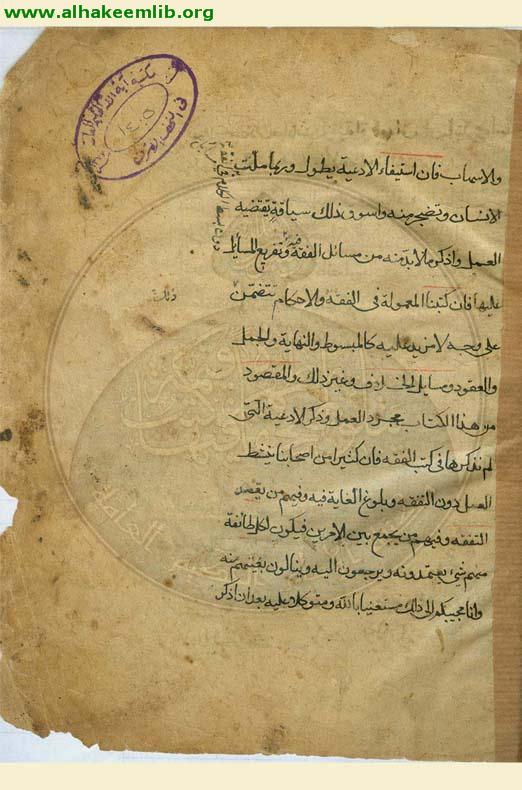 www.alhakeemlib.org
مكتبة آية الله الحكيم العامة
١٤٠٥
في النجف الاشرف
والاسهاب فان استيفاء الادعية يطول وربما ملت
الانسان وتضجر منه واسوق ذلك سياقة يقتضيه
العمل واذكر ما لابد منه من مسائل الفقه فيه وتفريع المسايل
عليها فان كتبنا المعمولة فى الفقه والاحكام تتضمن
ذلك
على وجه لا مزيد عليه كالمبسوط والنهاية والجمل
والعقود ومسايل الخلاف وغير ذلك والمقصود
من هذا الكتاب مجرد العمل وذكر الادعية التى
لم نذكرها فى كتب الفقه فان كثيرا من اصحابنا ينشط
العمل دون التفقه وبلوغ الغاية فيه وفيهم من يقصد
التفقه وفيهم من يجمع بين الامرين فيكون لكل طائفة
منهم شئ يعتمدونه ويرجعون اليه وينالون بغيتهم منه
وانا مجيبكم الى ذلك مستعينا بالله ومتوكلا عليه بعد ان اذكر